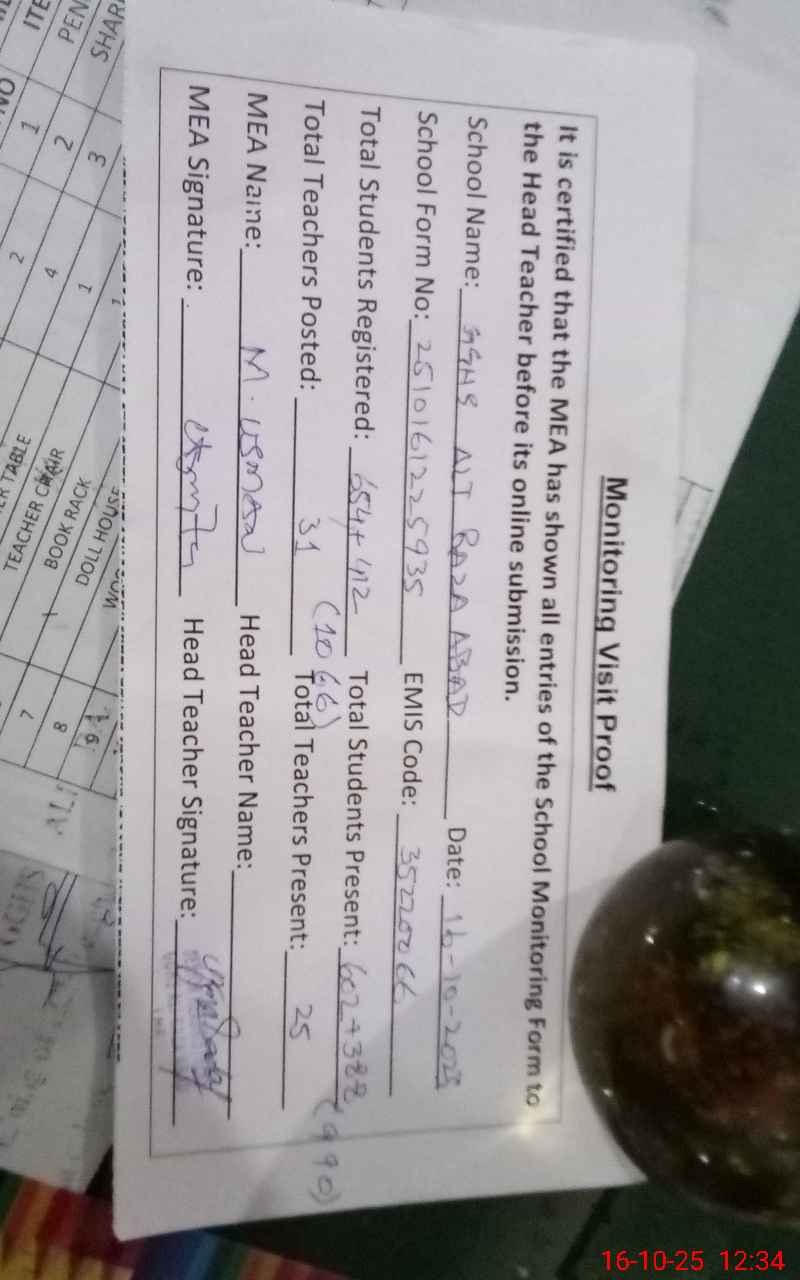 Monitoring Visit Proof
It is certified that the MEA has shown all entries of the School Monitoring Form to
the Head Teacher before its online submission.
School Name: GGHS ALI RAZA ABAD Date: 16-10-2025
School Form No: 2510161225935 EMIS Code: 35220066
Total Students Registered: 654+412 (1066) Total Students Present: 602+388 (990)
Total Teachers Posted: 31 Total Teachers Present: 25
MEA Name: M. USMAN Head Teacher Name:
MEA Signature: Head Teacher Signature:
TEACHER CHAIR
BOOK RACK
DOLL HOUS
16-10-25 12:34